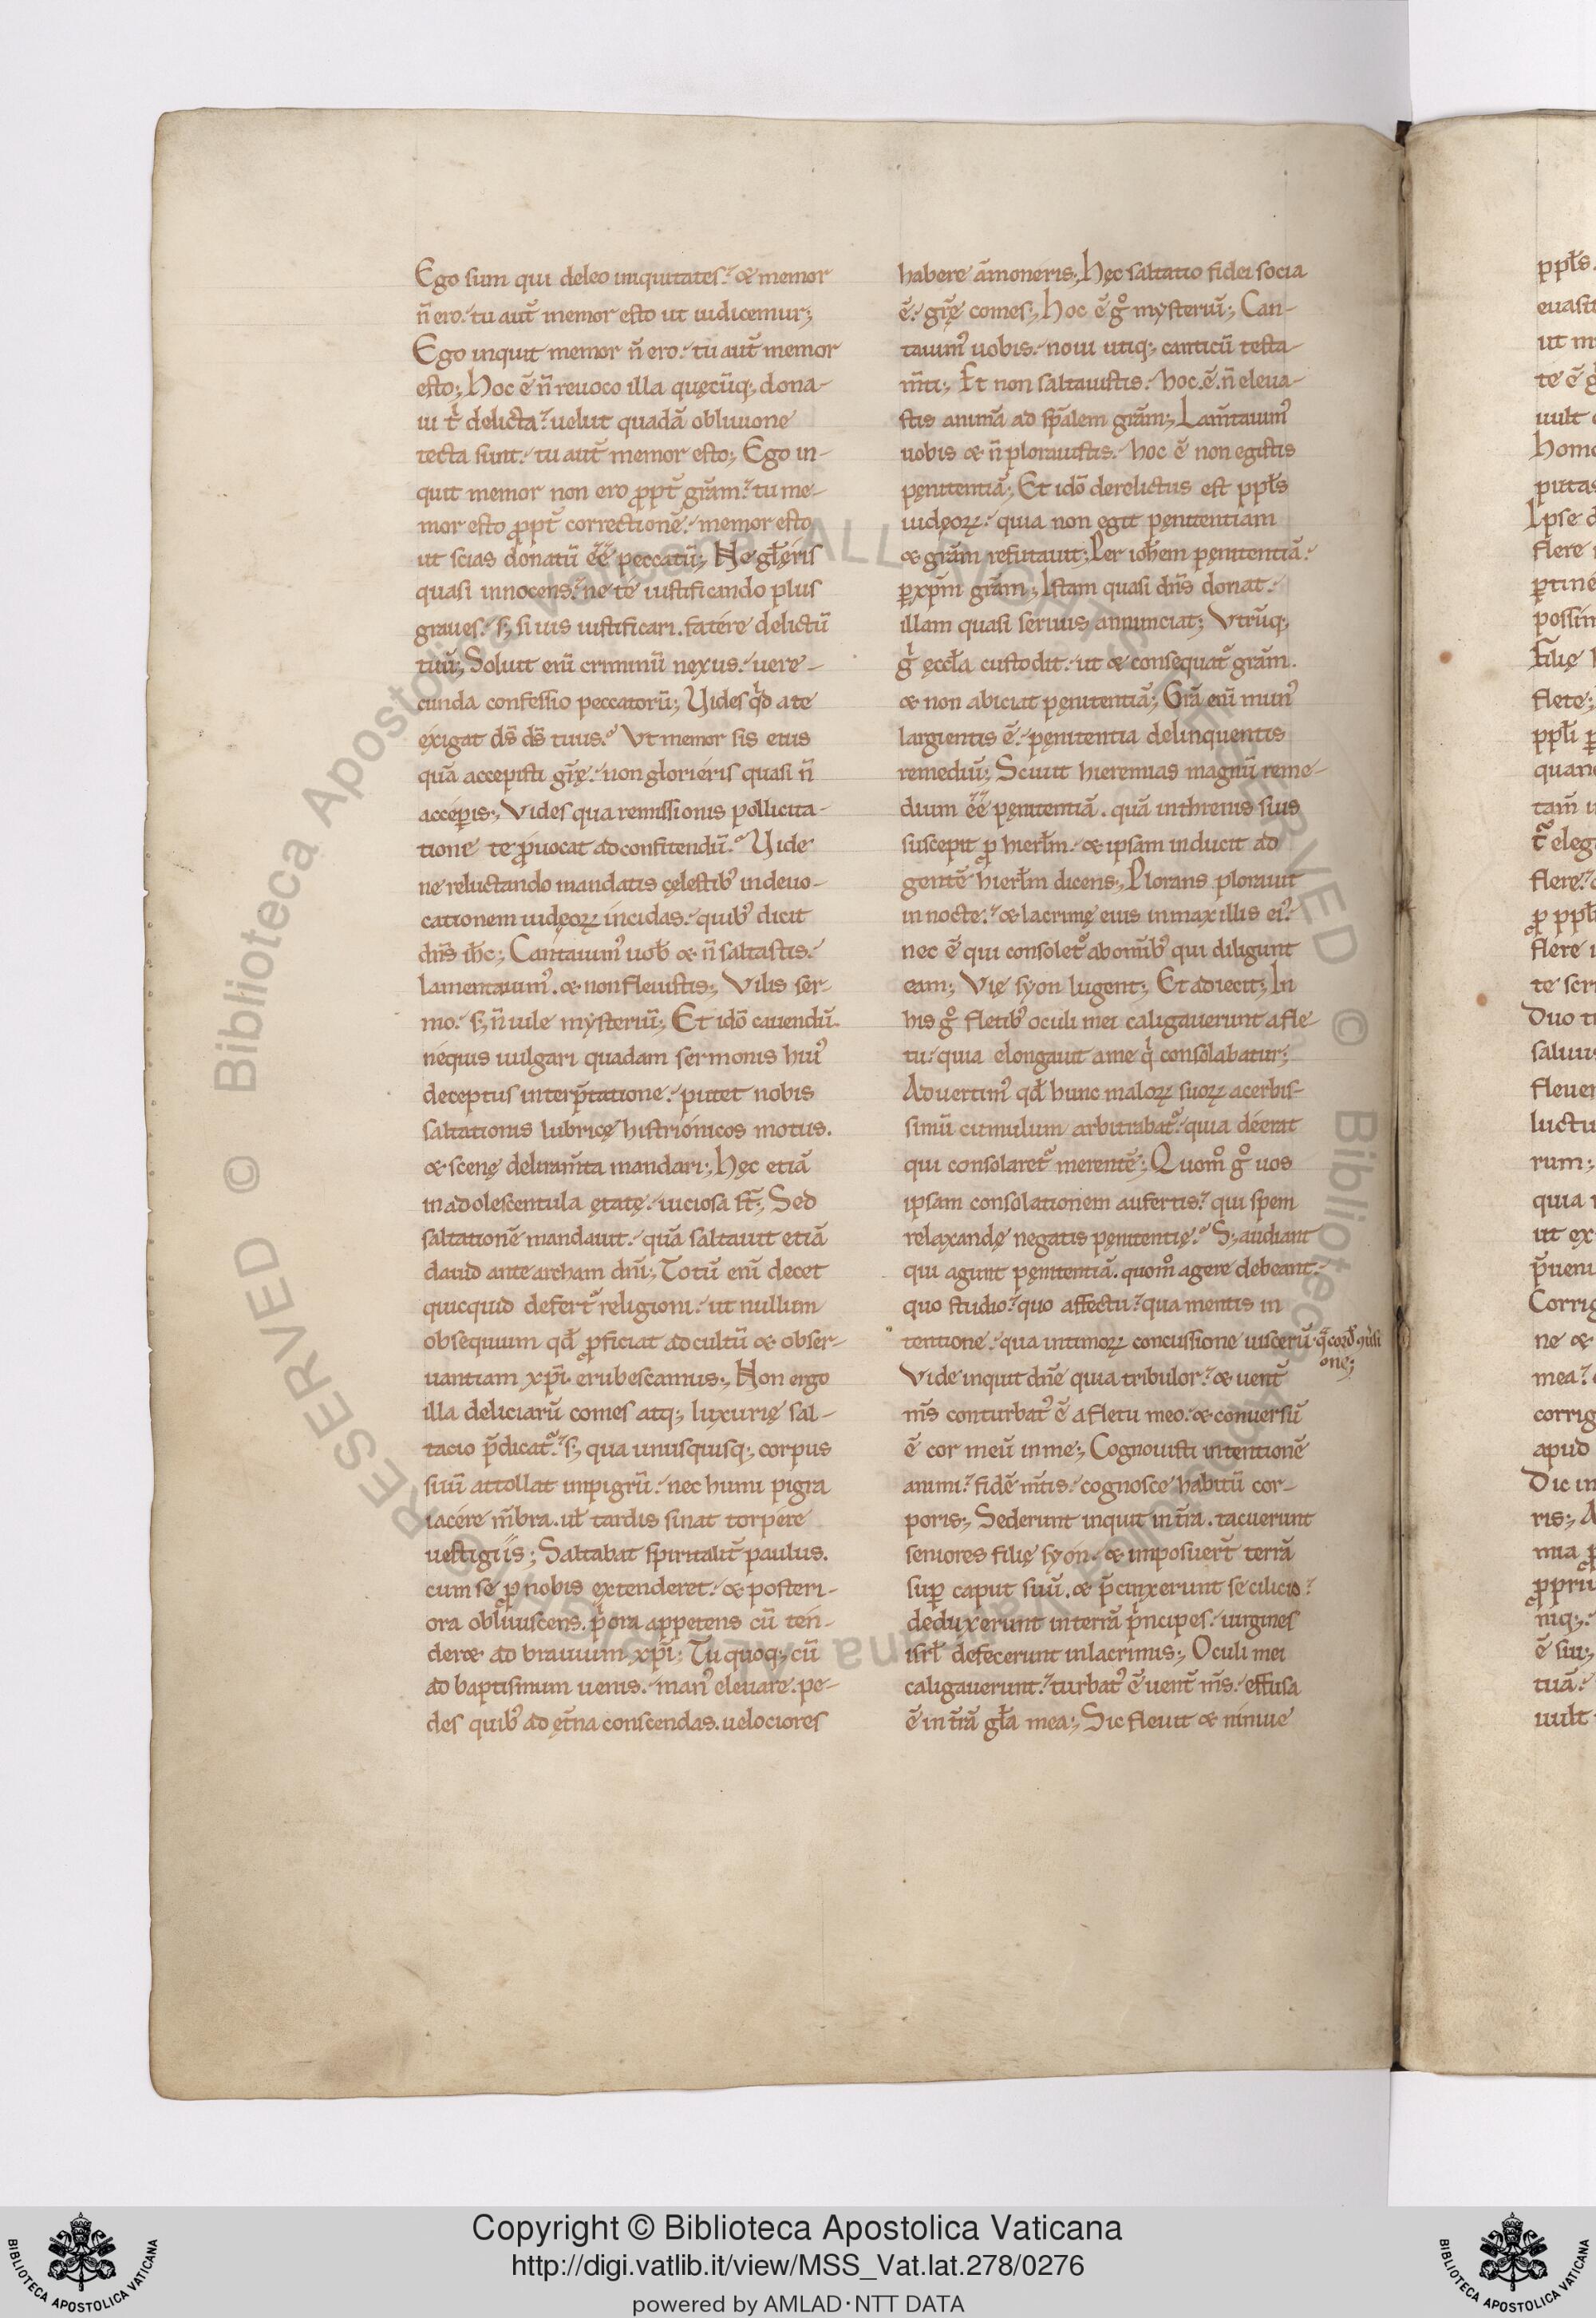 Ego sum qui deleo iniquitates. & memor
n̄ ero. tu aut̄ memor esto ut iudicemur;
Ego inquit memor n̄ ero. tu aut̄ memor
esto; Hoc ē n̄ reuoco illa quęcūq; dona-
ui tⁱ delicta. uelut quadā obliuione
tecta sunt. tu aut̄ memor esto; Ego in-
quit memor non ero ꝓpt̄ grām. tu me-
mor esto ꝓpt̄ correctionē. memor esto
ut scias donatū ēē peccatū; Ne gl̄ęris
quasi innocens. ne te iustificando plus
graues. s; si uis iustificari. fatere delictū
tuū; Soluit eni̅ criminū nęxus. uere-
cunda confessio peccatorū; Uides qͥd a te
éxigat d̄s d̄s tuus. Ut memor sis eius
quā accepisti gr̄ę. non glorieris quasi n̄
acceperis; Vides qua remissionis pollicita-
tione te ꝓuocat ad confitendū. Uide
ne reluctando mandatis cęlestibꝰ in deuo-
cationem iudęoꝝ incidas. quibꝰ dicit
dn̄s ih̄c; Cantauimꝰ uob̄ & n̄ saltastis.
lamentauimꝰ. & non fleuistis; Vilis ser-
mo. s; n̄ uile mysteriū; Et idō cauendū.
nequis uulgari quadam sermonis huiꝰ
deceptus interp̄tatione. putet nobis
saltationis lubricę histrionicos motus.
& scenę deliram̄ta mandari; Hęc etiā
in adolescentula ętatę. uiciosa st̄; Sed
saltationē mandauit. quā saltauit etiā
dauid ante archam dn̄i; Totū eni̅ decet
quicquid defert᷑ religioni. ut nullum
obsequium qd̄ ꝓficiat ad cultū & obser-
uantiam xp̄i. erubescamus; Non ergo
illa deliciarū comes atq; luxurię sal-
tacio p̄dicat᷑. s; qua unusquisq; corpus
suū attollat impigrū. nec humi pigra
iacere m̄bra. ul̄ tardis sinat torpere
uestigiis; Saltabat spiritalit̄ paulus.
cum se ꝓ nobis extenderet. & posteri-
ora obliuiscens. pͥora appetens cū ten-
deret ad brauium xp̄i. Tu quoq; cū
ad baptismum uenis. manꝰ eleuare. pe-
des quibꝰ ad ęt̄na conscendas. uelociores
habere āmoneris; Hęc saltatio fidei socia
ē. gr̄ę comes; Hoc ē gͦ mysteriū; Can-
tauimꝰ uobis. noui utiq; canticū testa-
m̄ti; Et non saltauistis. hoc. ē. n̄ eleua-
stis animā ad sp̄alem grām; Lam̄tauimꝰ
uobis & n̄ plorauistis. hoc ē non egistis
pęnitentiā; Et idō derelictus est ppl̄s
iudęoꝝ. quia non egit pęnitentiam
& grām refutauit; Per ioh̄em pęnitentiā.
ꝑ xp̄m grām; Istam quasi dn̄s donat.
illam quasi seruus annunciat; Vtrūq;
gͥ ęccl̄a custodit. ut & consequat᷑ grām.
& non abiciat pęnitentiā; Grā eni̅ munꝰ
largientis ē. pęnitentia delinquentis
remediū; Sciuit hieremias magnū reme-
dium ēē pęnitentiā. quā in threnis suis
suscepit ꝓ hierl̄m. & ipsam inducit ad
gentē hierl̄m dicens; Plorans plorauit
in nocte. & lacrimę eius in maxillis eiꝰ.
nec ē qui consolet᷑ ab om̄ibꝰ qui diligunt
eam; Vię syon lugent; Et adiecit; In
his gͦ fletibꝰ oculi mei caligauerunt a fle-
tu. quia elongauit a me qͥ consolabatur;
Aduertimꝰ qd̄ hunc maloꝝ suoꝝ acerbis-
simū cumulum arbitrabat᷑. quia deerat
qui consolaret᷑ merentē; Quom̊ gͦ uos
ipsam consolationem aufertis. qui spem
relaxandę negatis pęnitentię. S; audiant
qui agunt pęnitentiā. quom̊ agere debeant.
quo studio. quo affectu. qua mentis in
tentione. qua intimoꝝ concussione uiscerū. q̄ cord̄ ꝯ̄uersi
one;
Vide inquit dn̄e quia tribulor. & uent̄
m̄s conturbatꝰ ē a fletu meo. & conuersū
ē cor meū in me; Cognouisti intentionē
animi. fidē m̄tis. cognosce habitū cor-
poris; Sederunt inquit in t̄ra. tacuerunt
seniores filię syon. & imposuert̄ terrā
suꝑ caput suū. & p̄cinxerunt se cilicio.
deduxerunt in terrā pͥncipes. uirgines
isrl̄ defecerunt in lacrimis; Oculi mei
caligauerunt. turbatꝰ ē uent̄ m̄s. effusa
ē in t̄rā gl̄a mea; Sic fleuit & niniue
ppl̄s
ut m
te ē
uult
putas
Ipse
flere
possim
Filię
flete;
flere.
flere
Duo
fleuer
luctu
rum;
quia
ut ex
ne &
mea.
apud
Dic in
ris;
ē sui;
tuā.
uult
Copyright © Biblioteca Apostolica Vaticana
http://digi.vatlib.it/view/MSS_Vat.lat.278/0276
powered by AMLAD·NTT DATA
BIBLIOTECA APOSTOLICA VATICANA
BIBLIOTECA APOSTOLICA VATICANA